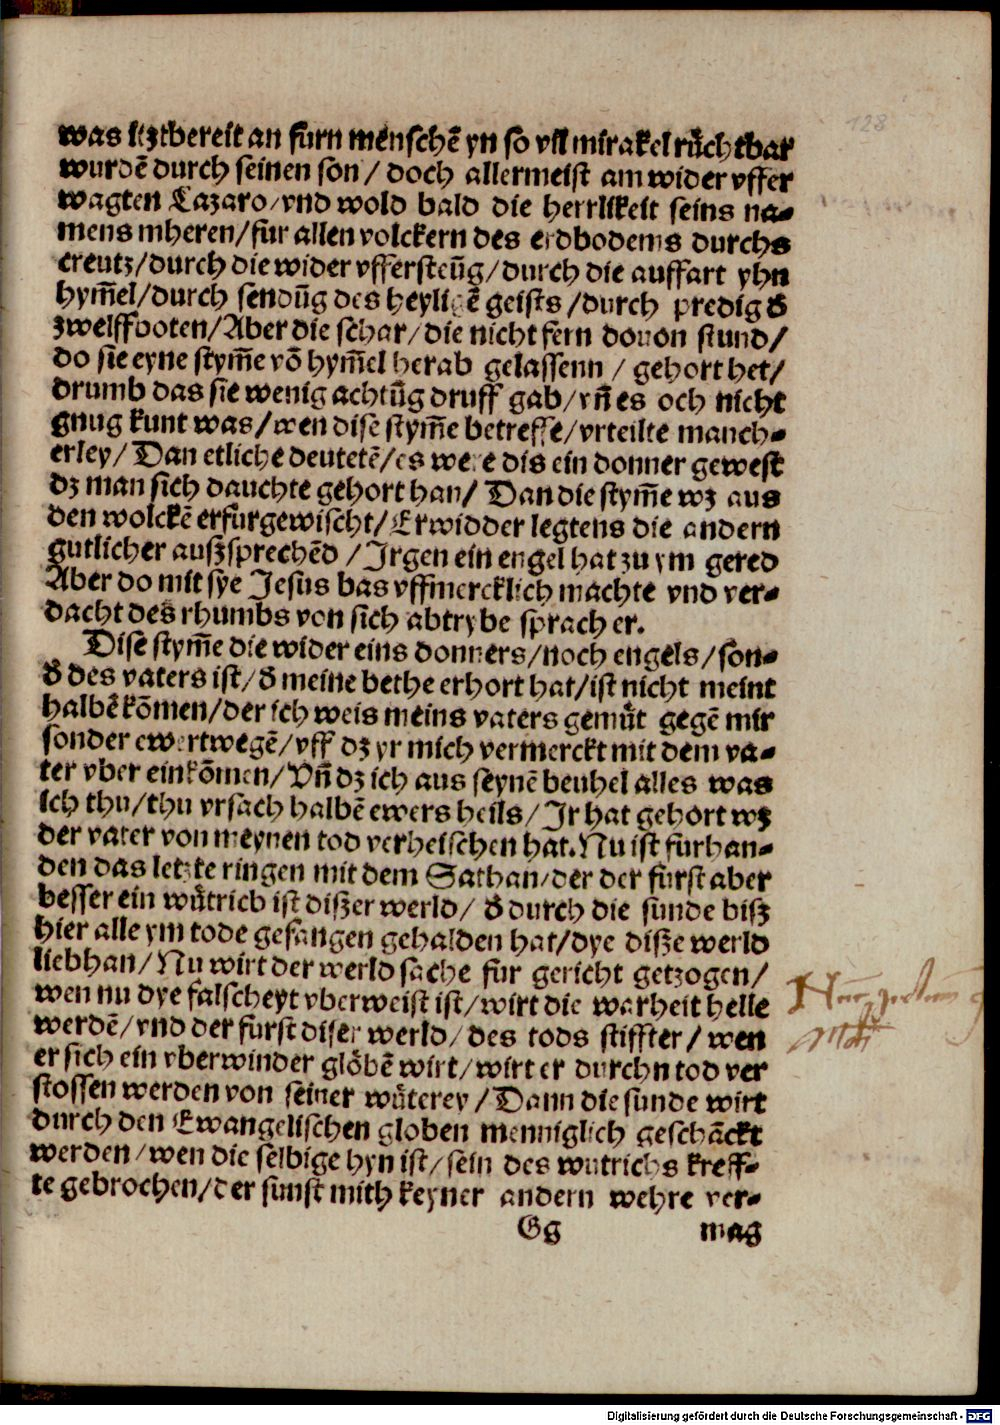 was itztbereit an furn menschē yn so vil mirakel růchtbar
wurdē durch seinen son / doch allermeist am wider vffer
wagten Lazaro / vnd wold bald die herrlikeit seins na-
mens mheren / fur allen volckern des erdbodems durchs
creutz / durch die wider vfferstēūg / durch die auffart yhn
hym̄el / durch sendūg des heyligē geists / durch predig d'
zwelffboten / Aber die schar / die nicht fern douon stund /
do sie eyne stym̄e vō hym̄el herab gelassenn / gehort het /
drumb das sie wenig achtūg druff gab / vn̄ es och nicht
gnug kunt was / wen dise stym̄e betreffe / vrteilte manch-
erley / Dan etliche deutetē / es were dis ein donner gewest
dz man sich dauchte gehort han / Dan die stym̄e wz aus
den wolckē erfurgewischt / Erwidder legtens die andern
gutlicher auszsprechēd / Irgen ein engel hat zu ym gered
Aber do mit sye Jesus bas vffmercklich machte vnd ver-
dacht des rhumbs von sich abtrybe sprach er.
Dise stym̄e die wider eins donners / noch engels / son-
d' des vaters ist / d' meine bethe erhort hat / ist nicht meint
halbē kōmen / der ich weis meins vaters gemůt gegē mir
sonder ewertwegē / vff dz yr mich vermerckt mit dem va-
ter vber einkōmen / Vn̄ dz ich aus seynē beuhel alles was
ich thu / thu vrsach halbē ewers heils / Ir hat gehort wz
der vater von meynen tod verheischen hat. Nu ist furhan-
den das letzte ringen mit dem Sathan / der der furst aber
besser ein wůtrich ist diszer werld / d' durch die sunde bisz
hier alle ym tode gefangen gehalden hat / dye disze werld
liebhan / Nu wirt der werld sache fur gericht getzogen /
wen nu dye falscheyt vberweist ist / wirt die warheit helle
werdē / vnd der furst diser werld / des tods stiffter / wen
er sich ein vberwinder glōbē wirt / wirt er durchn tod ver
stossen werden von seiner wůterey / Dann die sunde wirt
durch den Ewangelischen globen menniglich geschāckt
werden / wen die selbige hyn ist / sein des wutrichs kreff-
te gebrochen / der sunst mith keyner andern wehre ver-
Gg mag
128
Digitalisierung gefördert durch die Deutsche Forschungsgemeinschaft - DFG